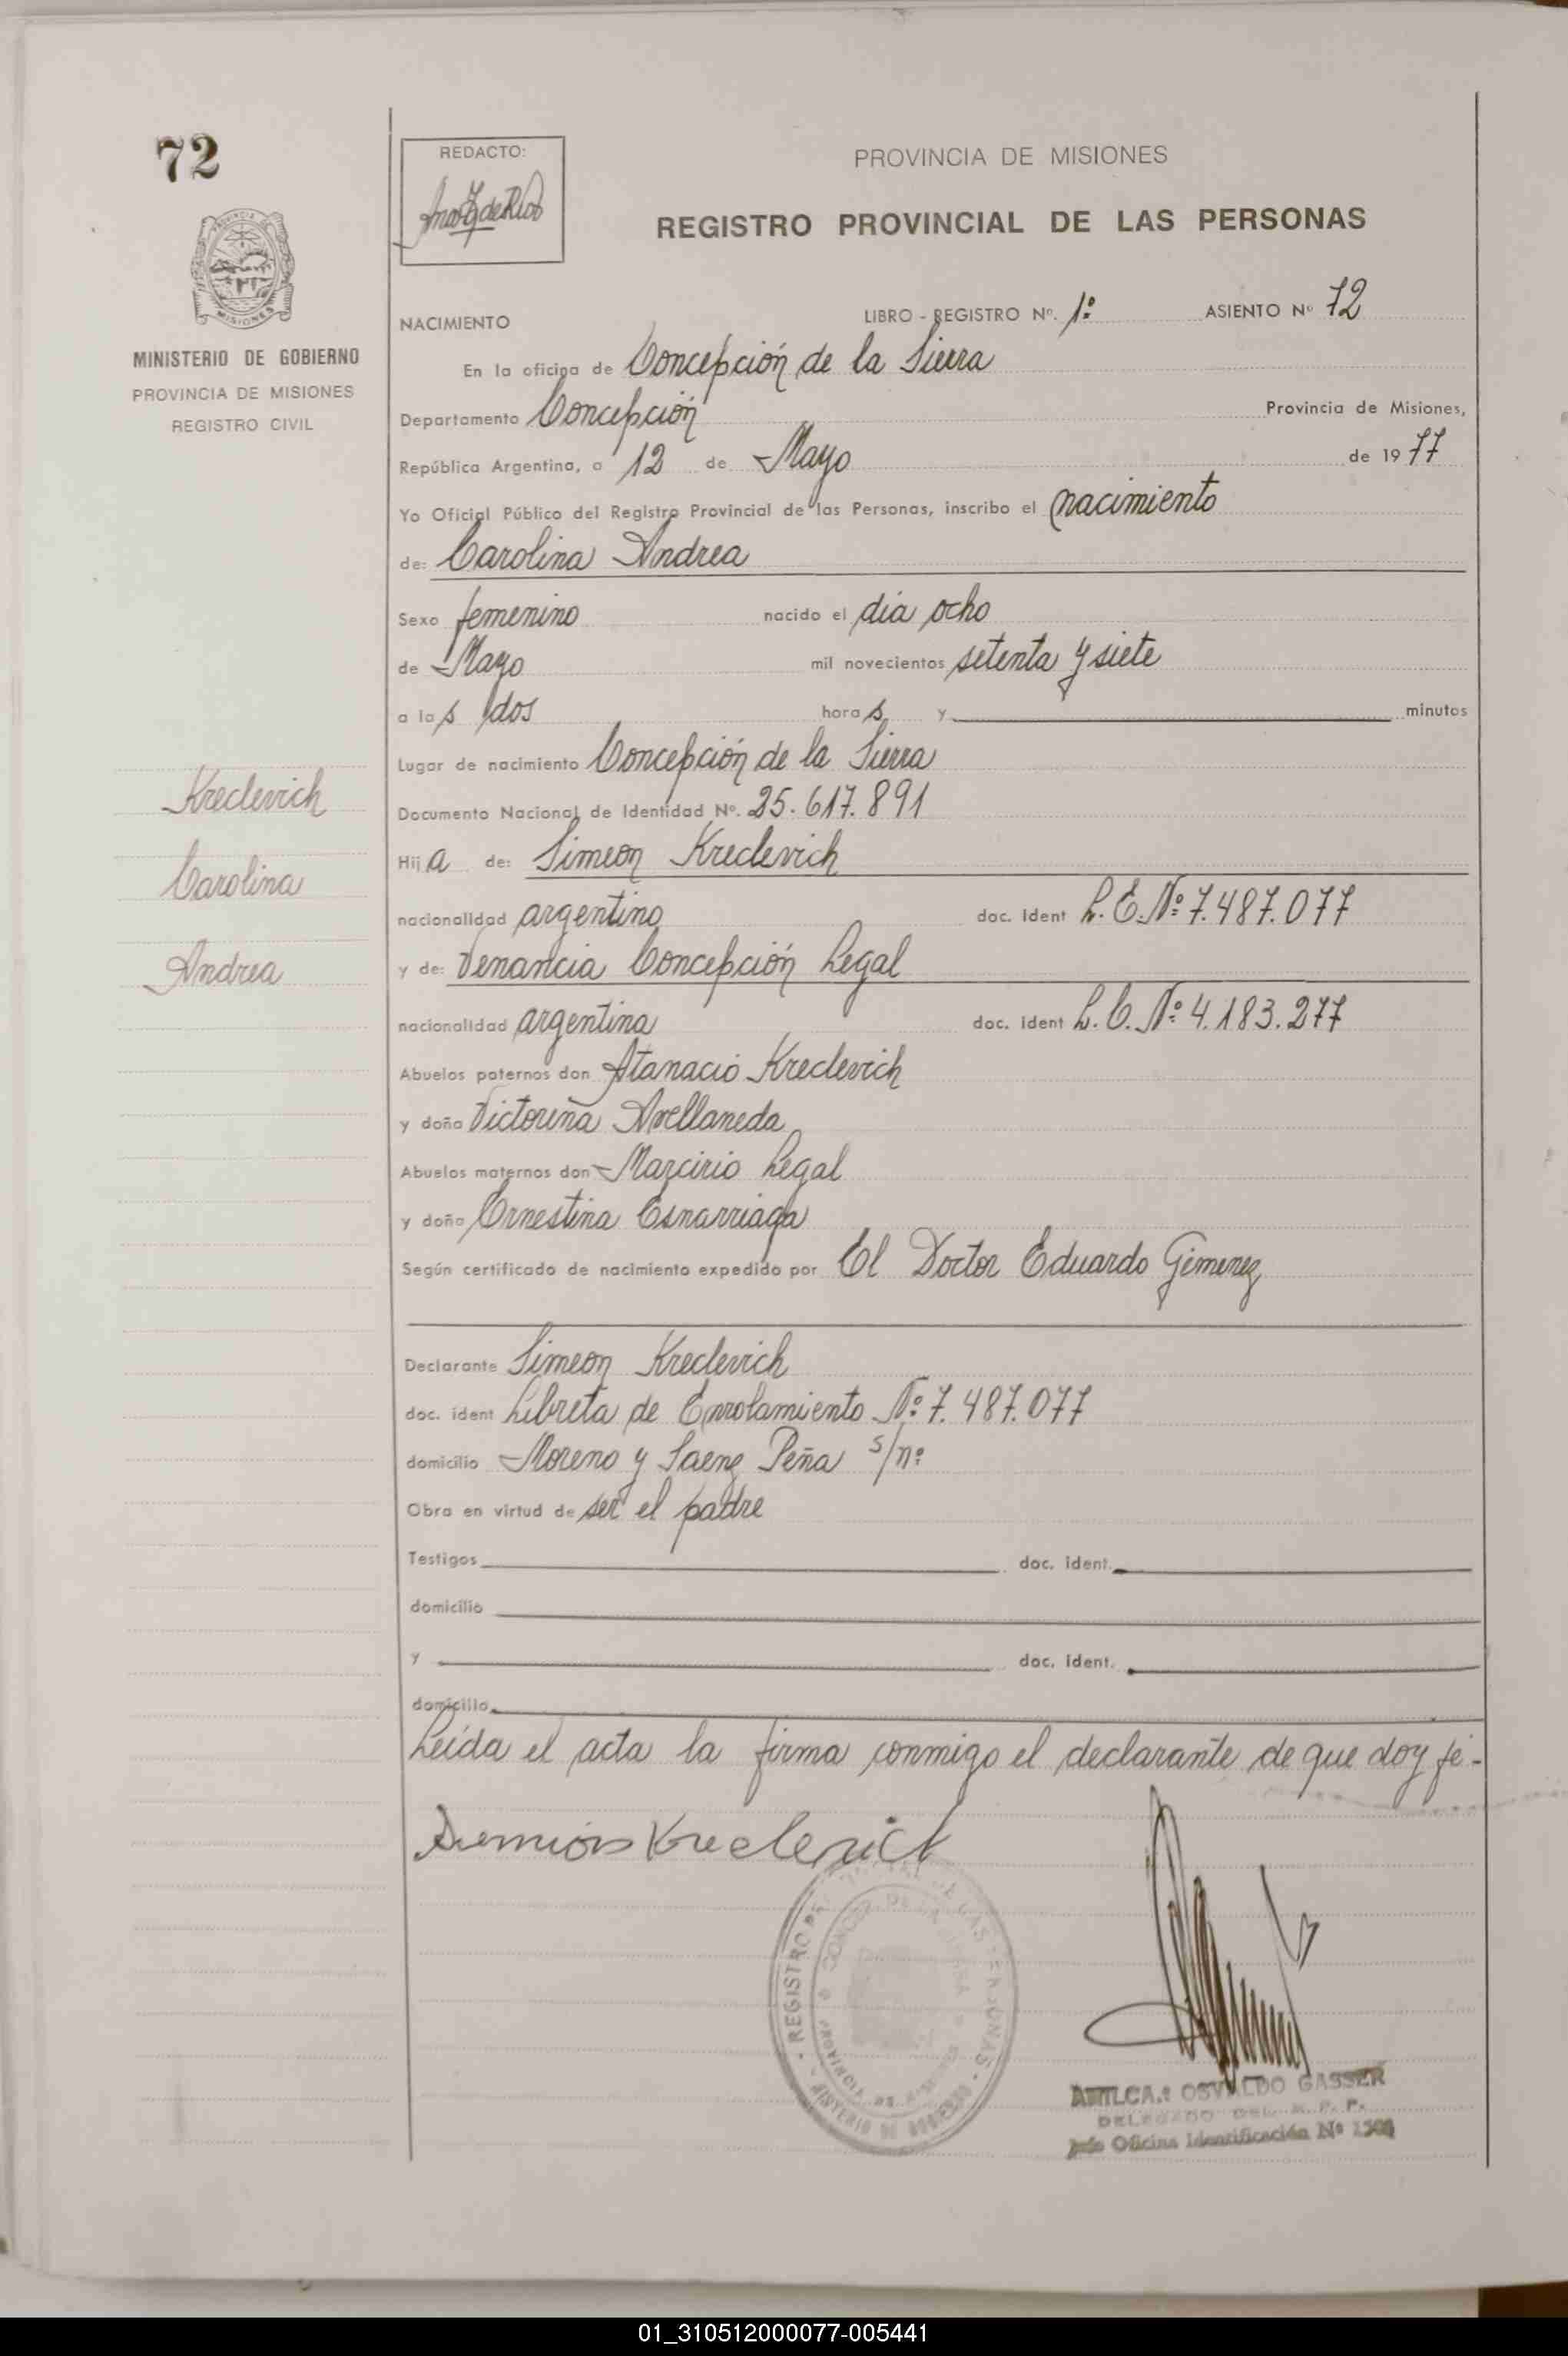 72
REDACTO:
PROVINCIA DE MISIONES
REGISTRO PROVINCIAL DE LAS PERSONAS
MISIONES
MINISTERIO DE GOBIERNO
PROVINCIA DE MISIONES
REGISTRO CIVIL
NACIMIENTO LIBRO - REGISTRO Nº. 1º ASIENTO Nº 72
En la oficina de Concepción de la Sierra
Departamento Concepción Provincia de Misiones,
República Argentina, a 12 de Mayo de 1977
Yo Oficial Público del Registro Provincial de las Personas, inscribo el nacimiento
de: Carolina Andrea
Sexo femenino nacido el día ocho
de Mayo mil novecientos setenta y siete
a las dos horas y minutos
Lugar de nacimiento Concepción de la Sierra
Documento Nacional de Identidad Nº. 25.617.891
Hija de: Simeon Kreclevich
nacionalidad argentino doc. ident L. E. Nº 7.487.077
y de: Venancia Concepción Legal
nacionalidad argentina doc. ident L. C. Nº 4.183.277
Abuelos paternos don Atanacio Kreclevich
y doña Victorina Avellaneda
Abuelos maternos don Marcirio Legal
y doña Ernestina Esnarriaga
Según certificado de nacimiento expedido por El Doctor Eduardo Gimenez
Declarante Simeon Kreclevich
doc. ident Libreta de Enrolamiento Nº 7.487.077
domicilio Moreno y Saenz Peña s/nº
Obra en virtud de ser el padre
Testigos doc. ident.
domicilio
y doc. ident.
domicilio
Leída el acta la firma conmigo el declarante de que doy fe.-
Kreclevich
Carolina
Andrea
Kreclevich
OSVALDO GASSER
DELEGADO DEL R. P. P.
Jefe Oficina Identificación Nº
01_310512000077-005441